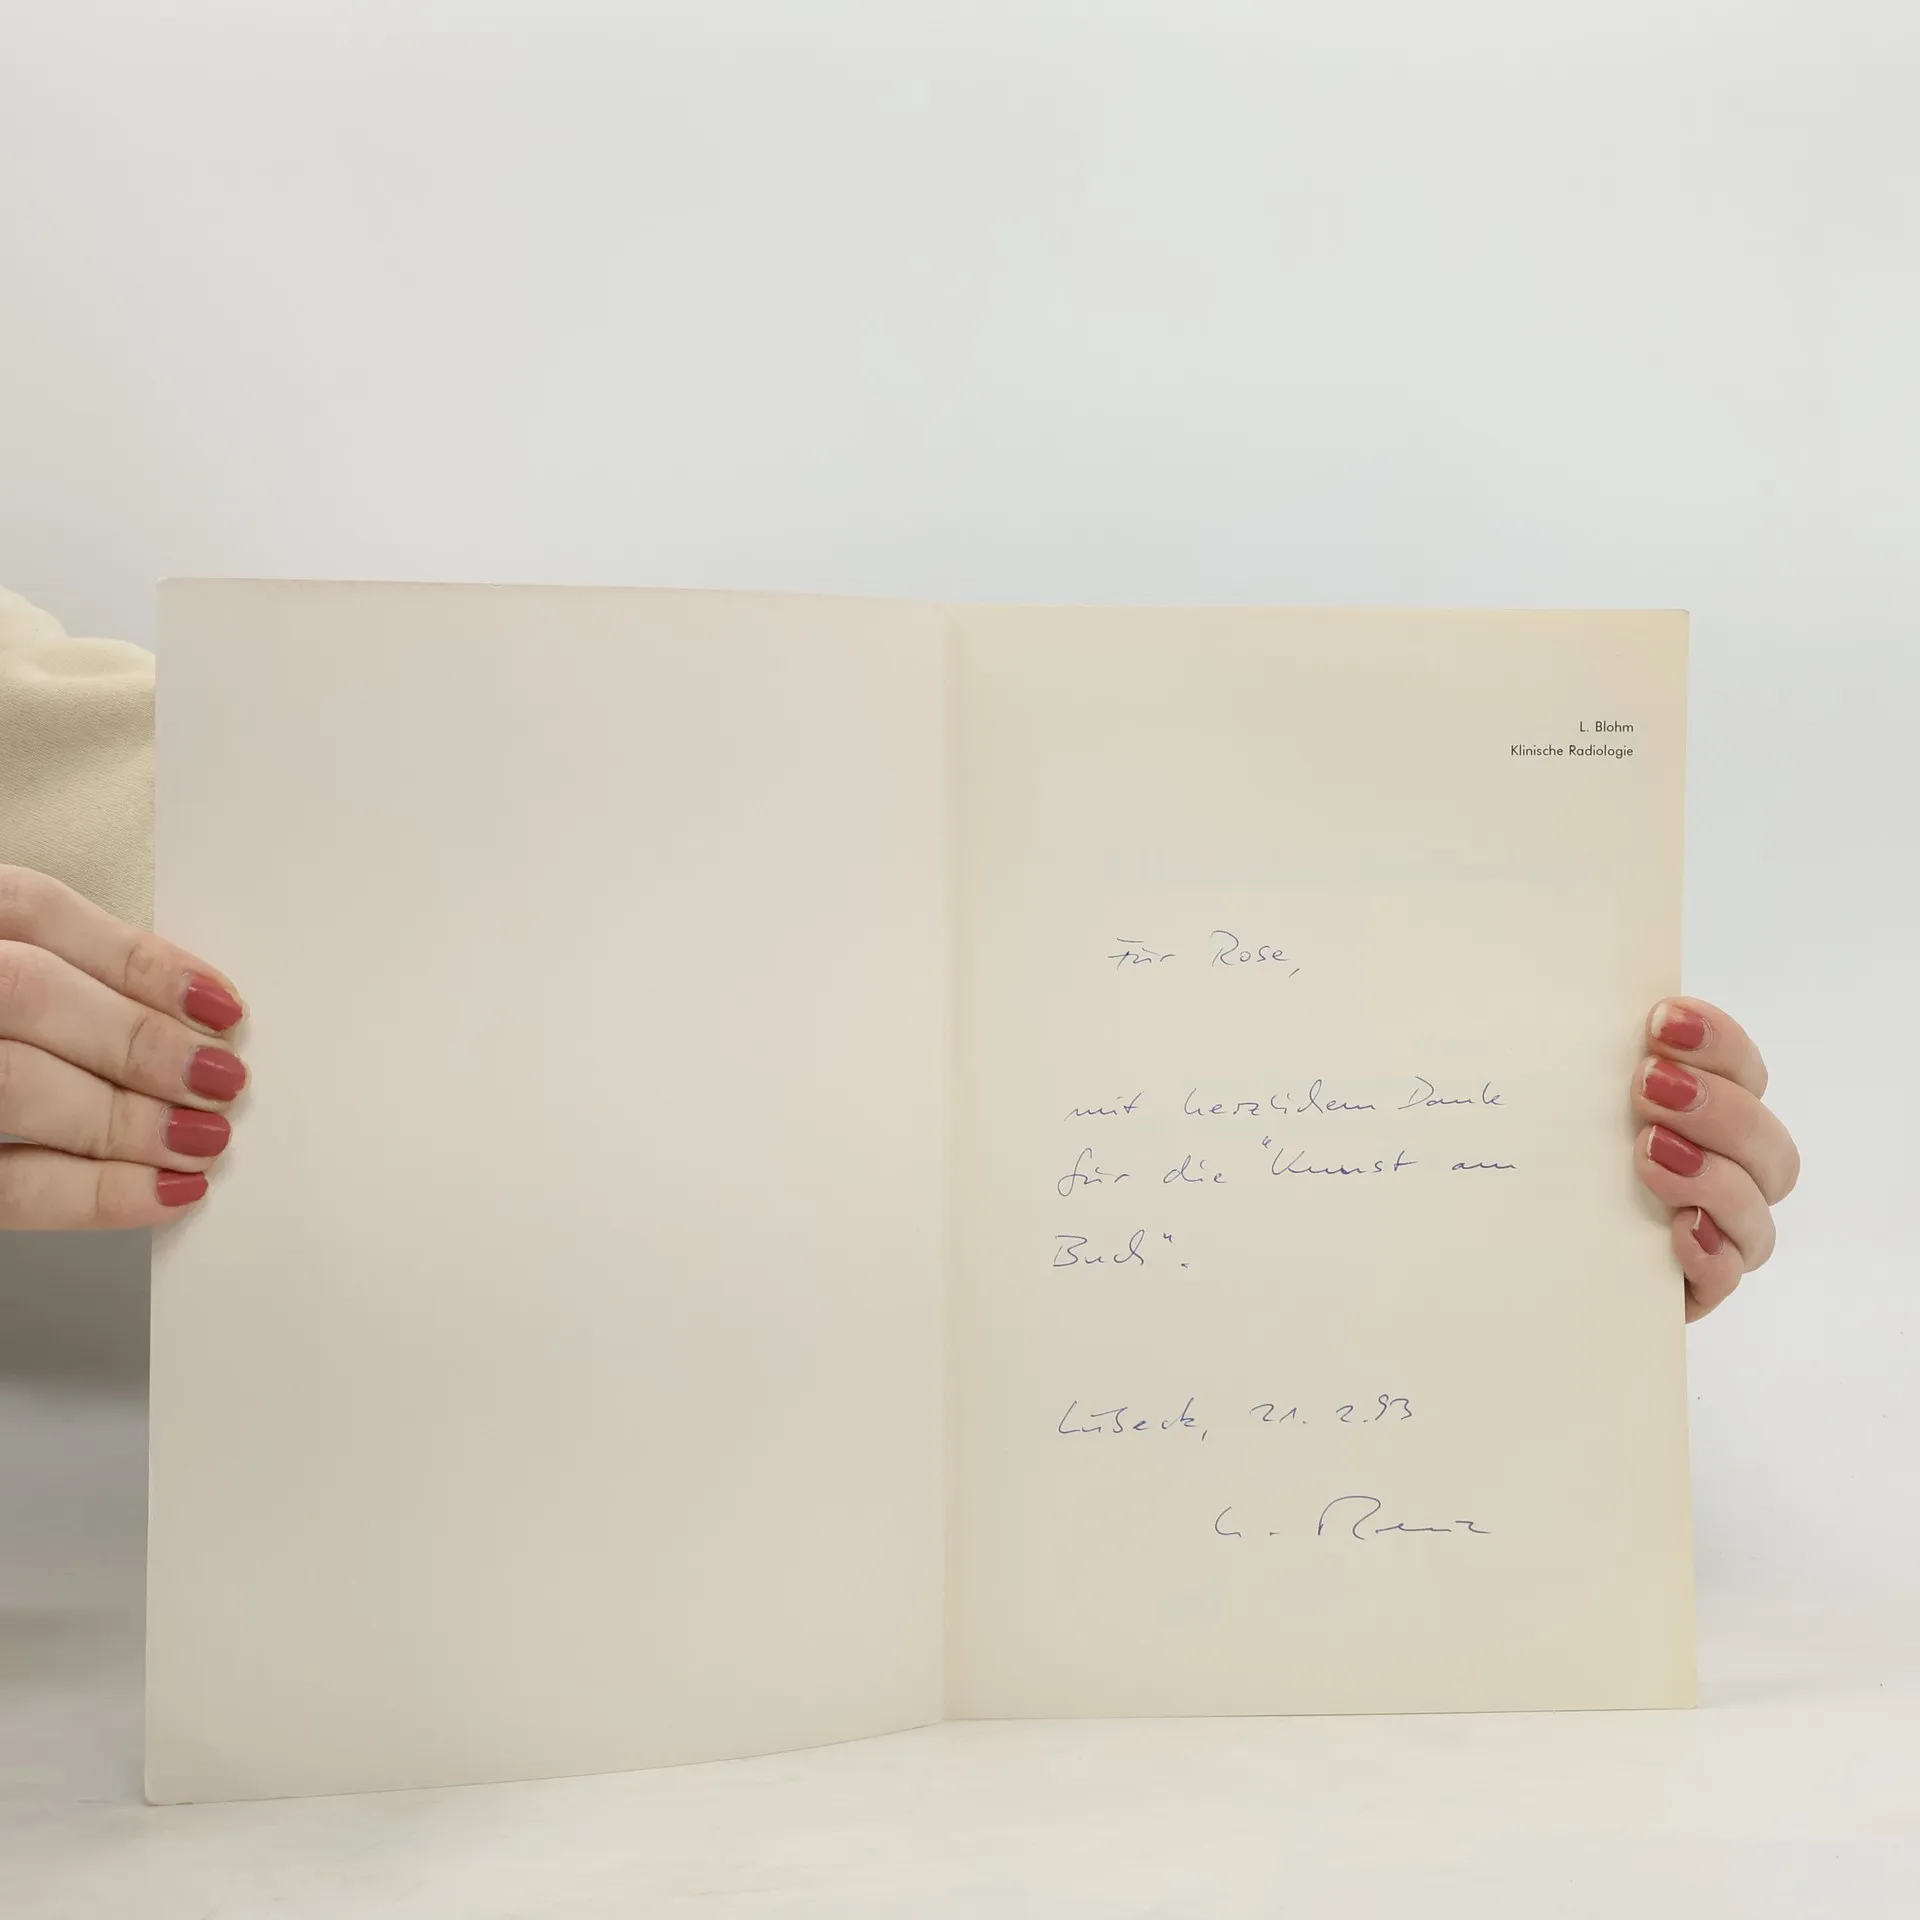 L. Blohm
Klinische Radiologie
Für Rose,
mit herzlichem Dank
für die "Kunst am
Buch".
Lübeck, 21. 2.93